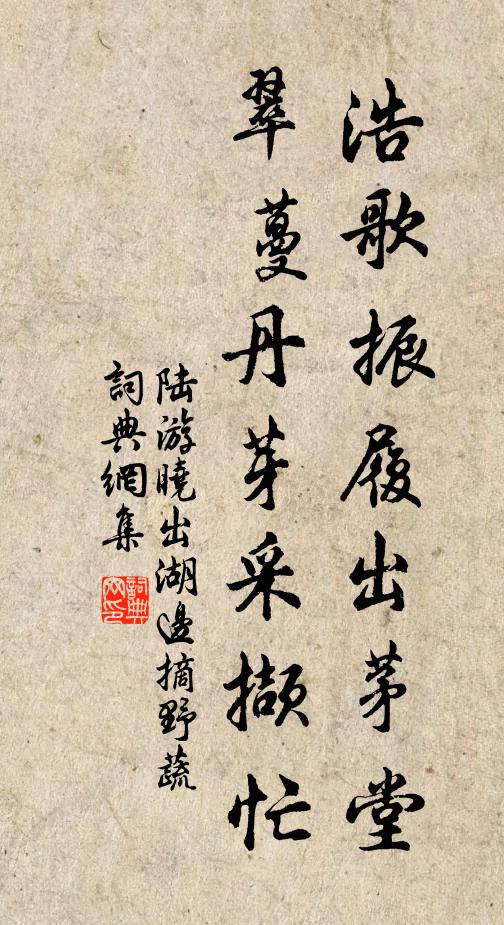 浩歌振履出茅堂
翠蔓丹芽采擷忙
陆游曉出湖邊摘野蔬
詞典網集
詞典網印